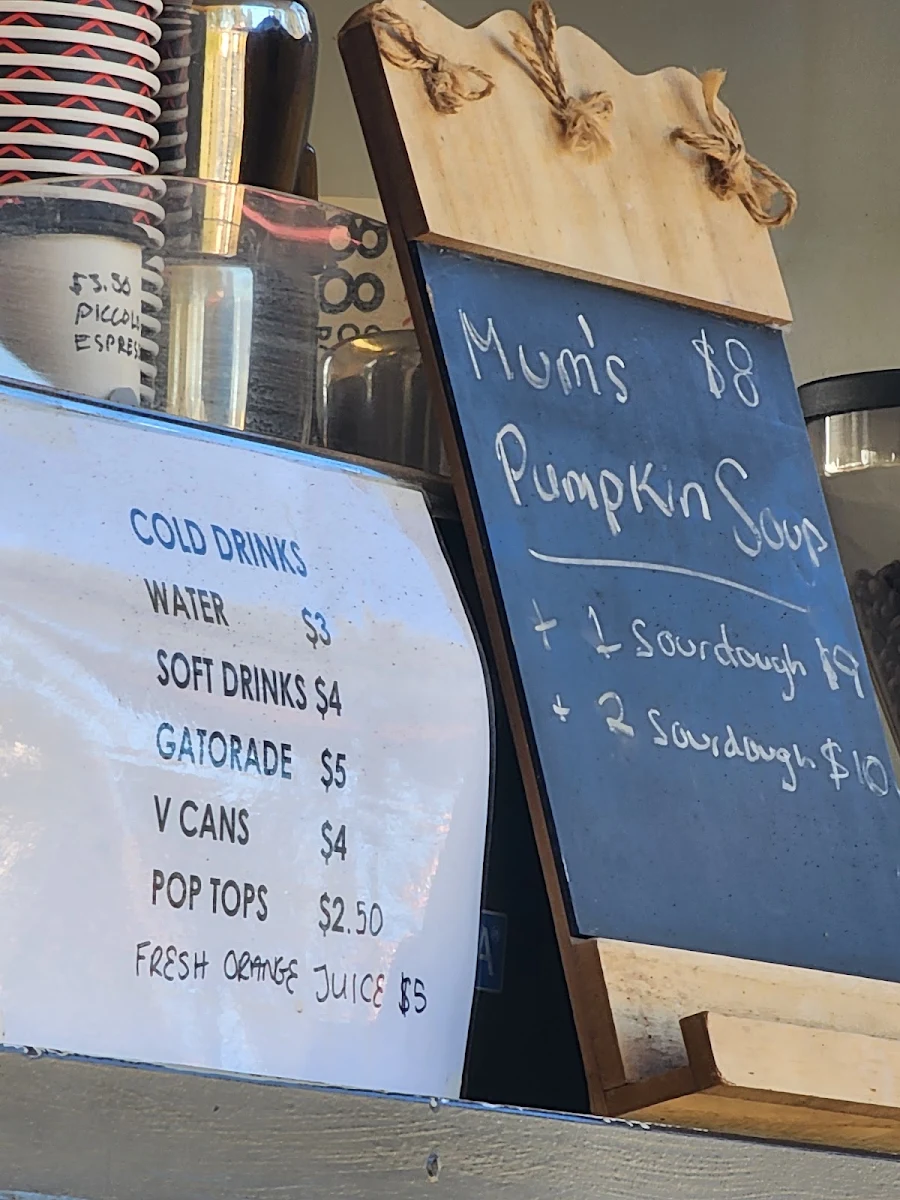 $3.50
PICCOLO
ESPRES
COLD DRINKS
WATER $3
SOFT DRINKS $4
GATORADE $5
V CANS $4
POP TOPS $2.50
FRESH ORANGE JUICE $5
Mum's $8
Pumpkin Soup
+ 1 sourdough $9
+ 2 sourdough $10